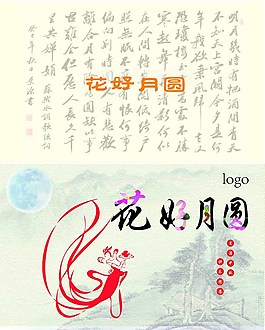 明月幾時有把酒問青天
不知天上宮闕今夕是何
年我欲乘風歸去又
恐瓊樓玉宇高處不
勝寒起舞弄清影何似
在人間轉朱閣低綺戶
照無眠不應有恨何事
長向別時圓人有悲歡
離合月有陰晴圓缺此事
古難全但願人長久千
里共嬋娟
花好月圆
logo
花好月圆